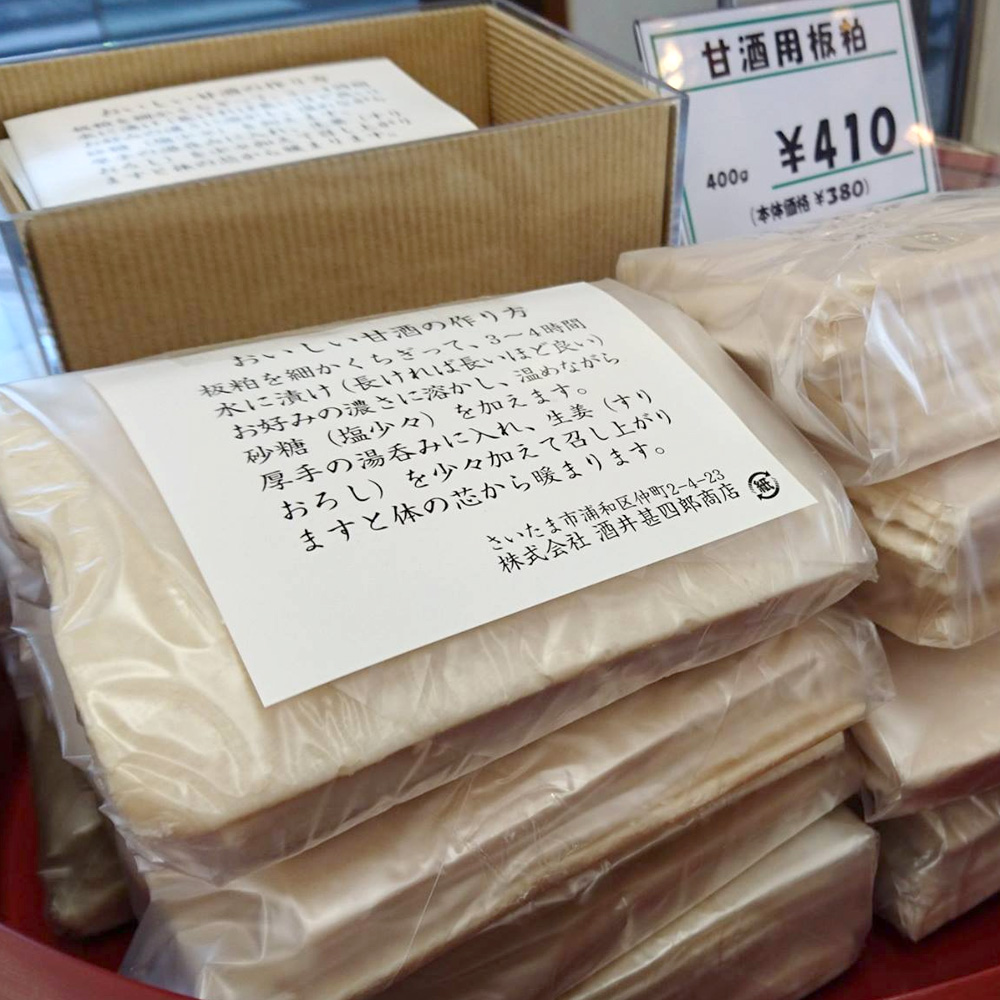 甘酒用板粕
¥410
400g
(本体価格 ¥380)
おいしい甘酒の作り方
おいしい甘酒の作り方
板粕を細かくちぎって、3〜4時間
水に漬け(長ければ長いほど良い)
お好みの濃さに溶かし、温めながら
砂糖(塩少々)を加えます。
厚手の湯呑みに入れ、生姜(すり
おろし)を少々加えて召し上がり
ますと体の芯から暖まります。
さいたま市浦和区仲町2-4-23
株式会社 酒井甚四郎商店
紙